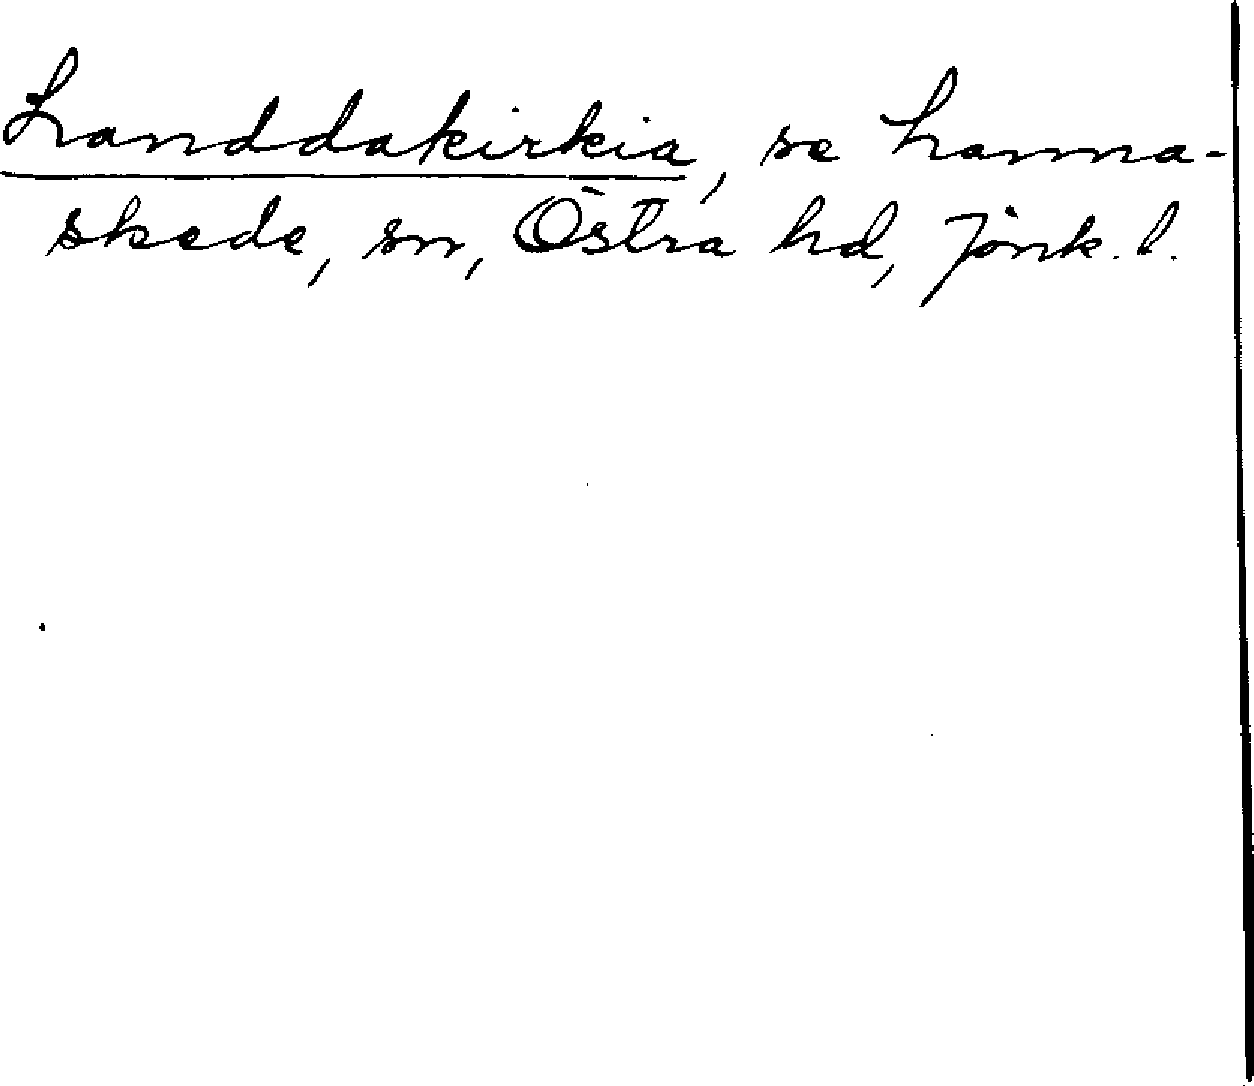 Landdakirkia, se Lanna-
skede, sn, Östra hd, Jönk. l.